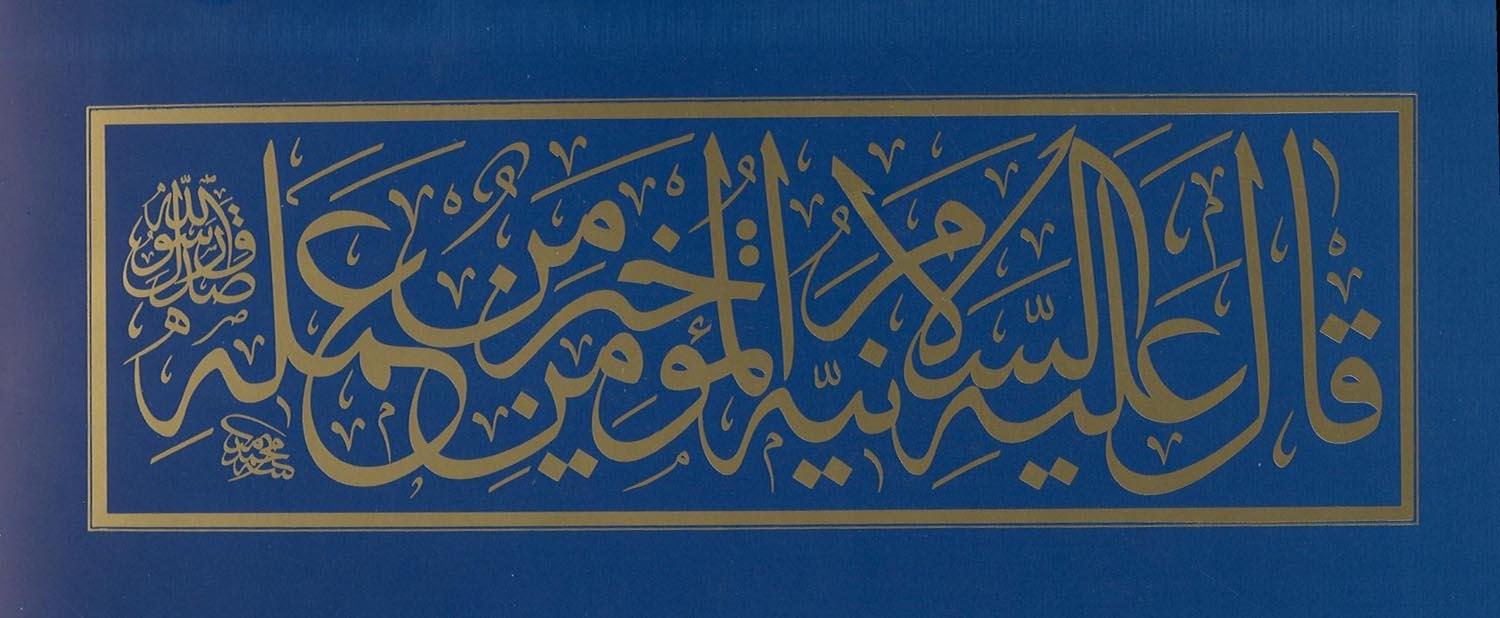 قَالَ عَلَيْهِ السَّلَامُ نِيَّةُ الْمُؤْمِنِ خَيْرٌ مِنْ عَمَلِهِ
صدق رسول الله